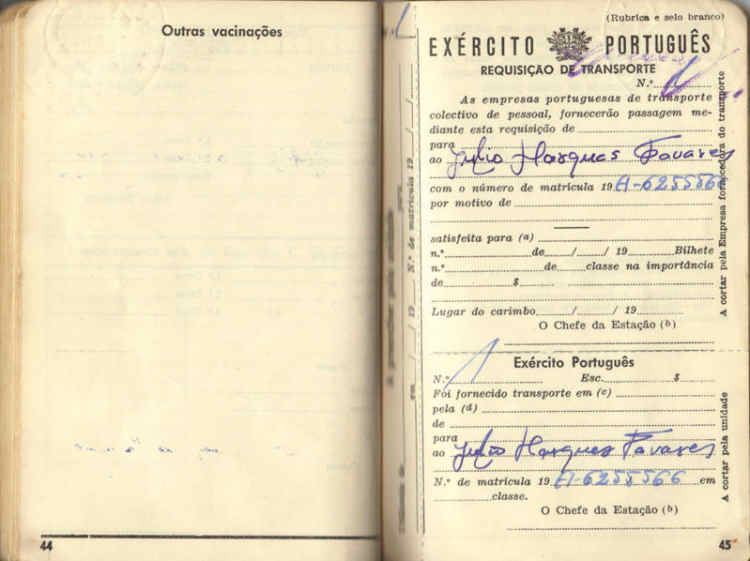 Outras vacinações
44
(Rubrica e selo branco)
EXÉRCITO PORTUGUÊS
REQUISIÇÃO DE TRANSPORTE
N.º
As empresas portuguesas de transporte
colectivo de pessoal, fornecerão passagem me-
diante esta requisição de
para
ao Julio Marques Tavares
com o número de matrícula 19 E1-6255566
por motivo de
satisfeita para (a)
n.º de / / 19 Bilhete
n.º de classe na importância
de $
Lugar do carimbo / / 19
O Chefe da Estação (b)
A cortar pela Empresa fornecedora do transporte
Exército Português
N.º 1 Esc. $
Foi fornecido transporte em (c)
pela (d)
de
para
ao Julio Marques Tavares
N.º de matrícula 19 E1-6255566 em
classe.
O Chefe da Estação (b)
A cortar pela unidade
45
N.º de matrícula 19
em / / 19